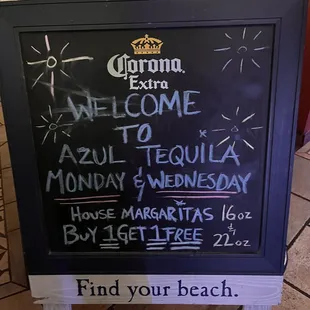 Corona
Extra
WELCOME
TO
AZUL TEQUILA
MONDAY & WEDNESDAY
HOUSE MARGARITAS 16oz
BUY 1 GET 1 FREE & 22oz
Find your beach.